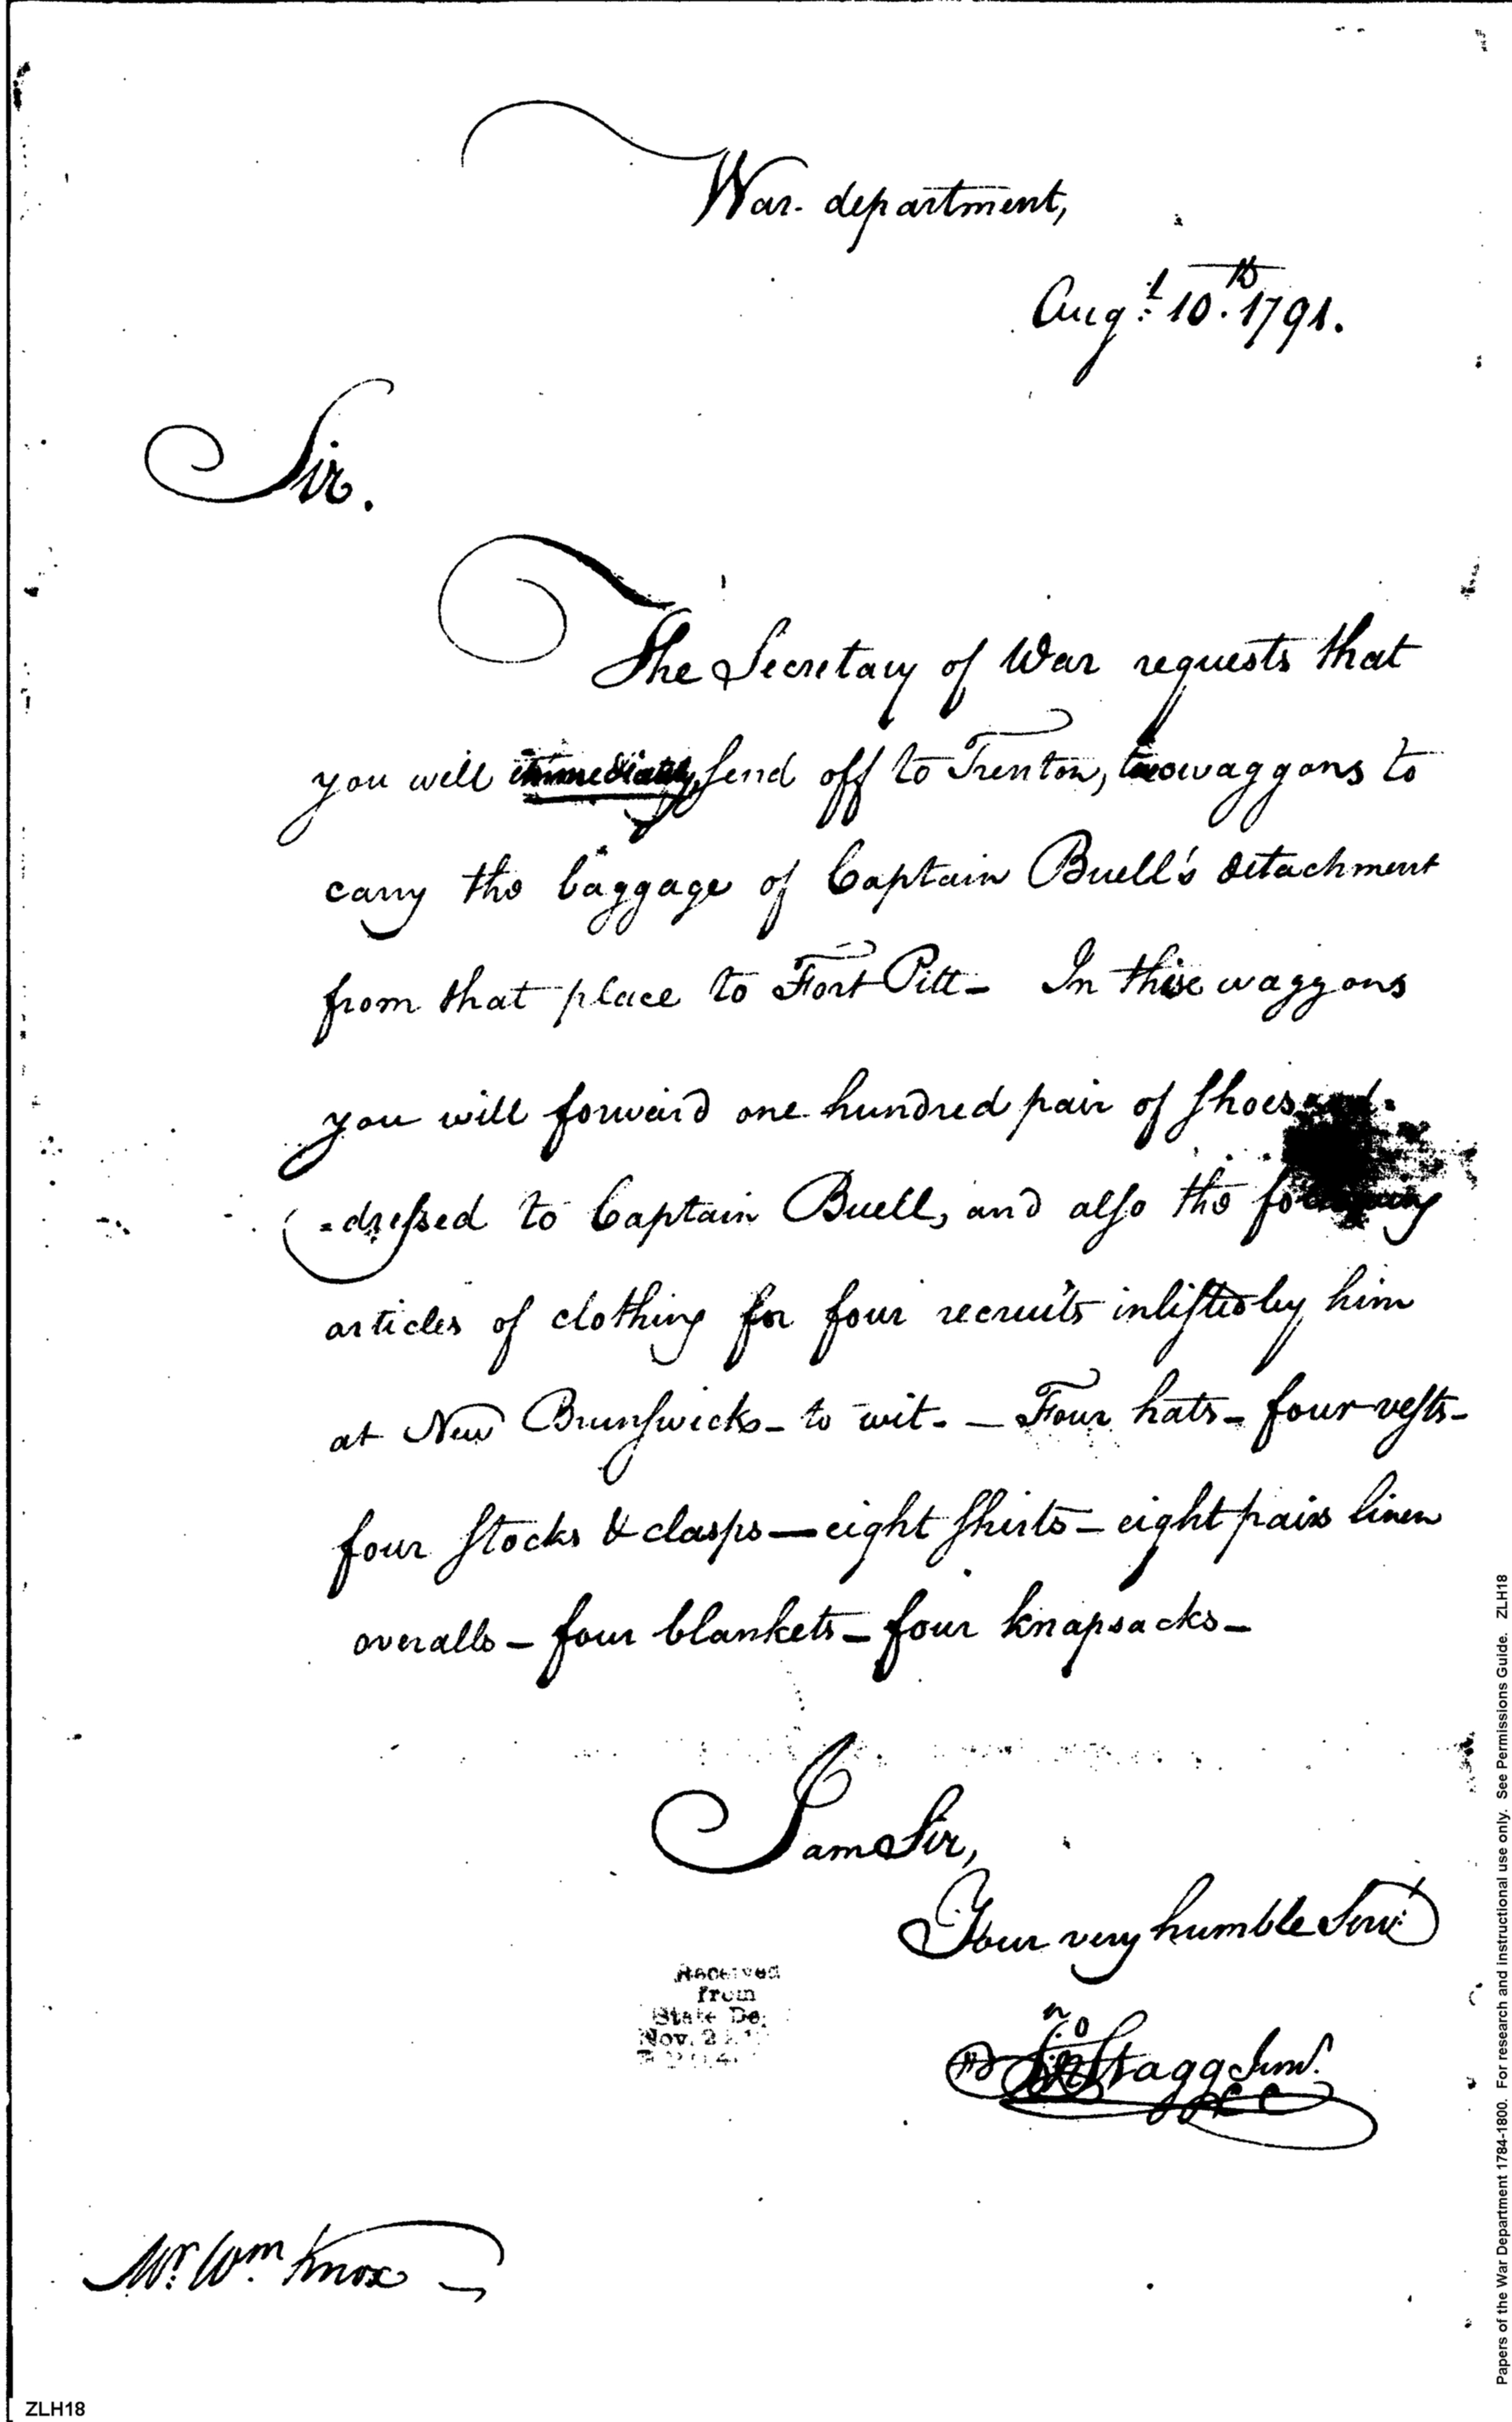 War department,
Augt. 10th. 1791.
Sir.
The Secretary of War requests that
you will immediately send off to Trenton, two waggons to
carry the baggage of Captain Buell's detachment
from that place to Fort Pitt - In these waggons
you will forward one hundred pair of shoes
-dressed to Captain Buell, and also the following
articles of clothing for four recruits inlisted by him
at New Brunswick - to wit - - Four hats - four vests -
four stocks & clasps — eight shirts - eight pairs linen
overalls - four blankets - four knapsacks -
I am Sir,
Your very humble Servt.
Jno Stagg Junr.
Received
from
State De
Nov. 2
Mr. Wm Knox
ZLH18
Papers of the War Department 1784-1800. For research and instructional use only. See Permissions Guide. ZLH18